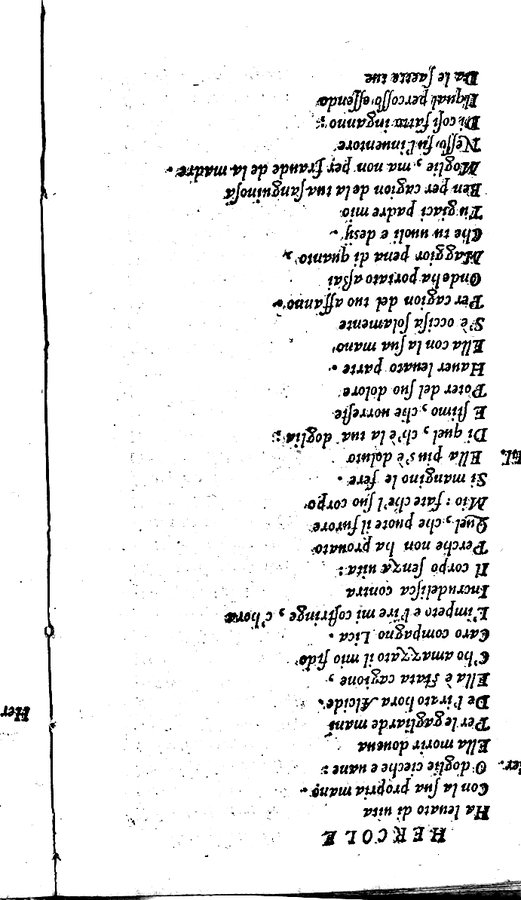 HERCOLE
Ha leuato di uita
Con la sua propria mano.
Her. O doglie cieche e uane:
Ella morir doueua
Per le gagliarde mani
De l'irato hora Alcide.
Ella è stata cagione,
C'ho amazzato il mio fido
Caro compagno Lica.
L'impeto e l'ire mi costringe, c'hora
Incrudelisca contra
Il corpo senza uita:
Perche non ha prouato
Quel, che puote il furore
Mio: fate che'l suo corpo
Si mangino le fere.
Il. Ella piu s'è doluto
Di quel, ch'è la tua doglia:
E stimo, che uorreste
Poter del suo dolore
Hauer leuato parte.
Ella con la sua mano
S'è occisa solamente
Per cagion del tuo affanno.
Onde ha portato assai
Maggior pena di quanto,
Che tu uuoli e desij.
Tu giaci padre mio
Ben per cagion de la tua sanguinosa
Moglie, ma non per fraude de la madre.
Nesso fu l'inuentore
Di cosi fatto inganno:
Il qual percosso essendo
Da le saette tue
Her